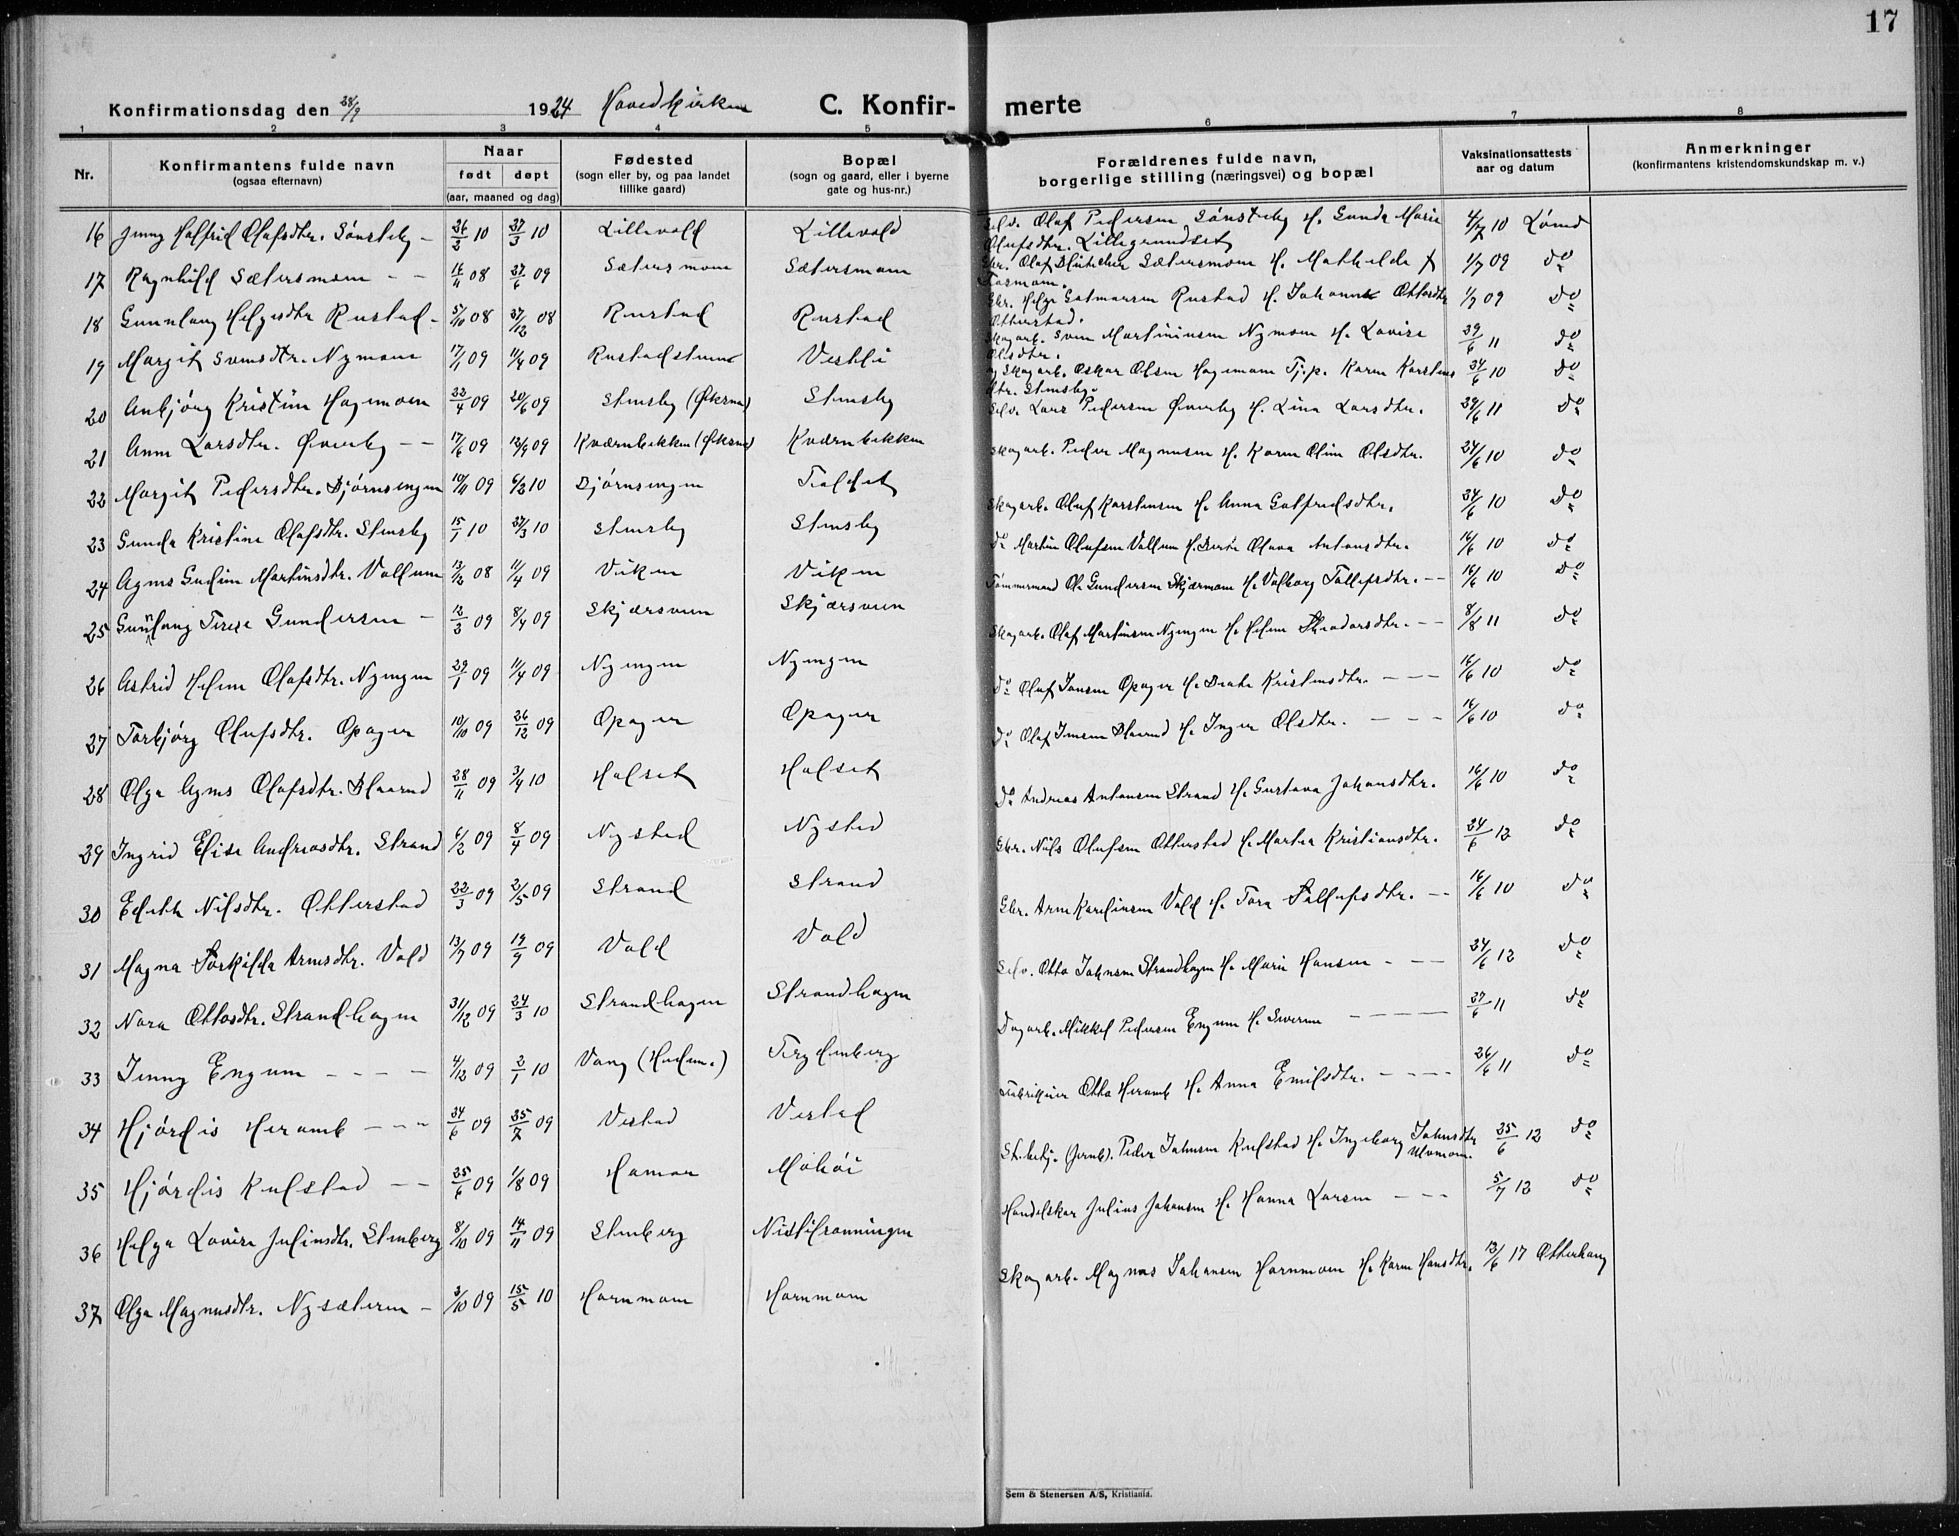 17
Konfirmationsdag den 28/9 1924 Hovedkirken C. Konfir- merte
1 2 3 4 5 6 7 8
Nr. Konfirmantens fulde navn (ogsaa efternavn) Naar født døpt (aar, maaned og dag) Fødested (sogn eller by, og paa landet tillike gaard) Bopæl (sogn og gaard, eller i byerne gate og hus-nr.) Forældrenes fulde navn, borgerlige stilling (næringsvei) og bopæl Vaksinationsattests aar og datum Anmerkninger (konfirmantens kristendomskundskap m. v.)
16 Jenny Halfrid Olufsdtr. Sønsteby - 26/3 10 27/3 10 Lillevold Lillevold Selv. Oluf Pedersen Sønsteby H. Gunda Marie Olufsdtr. Lillegrundset 4/7 10 Lømd
17 Ragnhild Sætersmoen - - 16/4 08 27/6 09 Sætersmoen Sætersmoen Gbr. Olaf Sætersmoen H. Mathilde f 1/7 09 do
18 Gunnlaug Helgesdtr Rustad - 5/10 08 27/12 08 Rustad Rustad Gbr. Helge Rustad H. Johanne Ottosdtr Otterstad. 1/7 09 do
19 Margit Svensdtr. Nymoen 17/1 09 11/4 09 Rustadstuen Vestli Skogarb. Sven Martiniusen Nymoen H. Lovise Olsdtr. 29/6 11 do
20 Anbjørg Kristine Hagemoen 22/4 09 20/6 09 Stensby (Øksna) Stensby Skogarb. Oskar Olsen Hagemoen Tj.p. Karen Karstensdtr. Stensby. 24/6 10 do
21 Anne Larsdtr. Øverby - - 17/6 09 12/9 09 Kværnbekken (Øksna) Kværnbekken Selv. Lars Pedersen Øverby H. Lina Larsdtr. 29/6 11 do
22 Margit Pedersdtr. Bjørnsengen 10/11 09 6/2 10 Bjørnsengen Fialset Skogarb. Peder Magnusen H. Karen Oline Olsdtr. 24/6 10 do
23 Gunda Kristine Olufsdtr. Stensby 15/1 10 27/3 10 Stensby Stensby Skogarb. Oluf Karstensen H. Anna Gotfredsdtr. 24/6 10 do
24 Agnes Gudine Martinsdtr. Vollum 13/12 08 11/4 09 Viken Viken do Martin Olufsen Vollum H. Berte Olava Antonsdtr. 16/6 10 do
25 Gunnlaug Terese Gundersen - 12/3 09 8/4 09 Skjærsveen Skjærsveen Tømmermand Ole Gundersen Skjærmoen H. Valborg Tollefsdtr. - - 16/6 10 do
26 Astrid Helene Olafsdtr. Nyengen 29/1 09 11/4 09 Nyengen Nyengen Skogarb. Olaf Martinsen Nyengen H. Helene Theodorsdtr. - - 8/8 11 do
27 Torbjørg Olufsdtr. Opager 10/10 09 26/12 09 Opager Opager do Oluf Jansen Opager H. Beate Kristensdtr. - - - 16/6 10 do
28 Olga Agnes Olafsdtr. Blaarud 28/11 09 3/4 10 Halset Halset do Olaf Jensen Blaarud H. Inger Olsdtr. - - - 16/6 10 do
29 Ingrid Elise Andreasdtr. Strand 6/2 09 8/4 09 Nysted Nysted do Andreas Antonsen Strand H. Gustava Johansdtr. 16/6 10 do
30 Edith Nilsdtr. Otterstad 22/3 09 2/5 09 Strand Strand Gbr. Nils Olufsen Otterstad H. Martea Kristiansdtr. 24/6 12 do
31 Magna Torkilda Arnesdtr. Vold 13/7 09 19/9 09 Vold Vold Gbr. Arne Karelinsen Vold H. Tora Tollefsdtr. - - 16/6 10 do
32 Nora Ottosdtr. Strandhagen 31/12 09 24/3 10 Strandhagen Strandhagen Selv. Otto Johnsen Strandhagen H. Marie Hansen - - - 24/6 12 do
33 Jenny Engum - - - - 4/12 09 2/1 10 Vang (Hedm.) Terydenberg Dagarb. Mikkel Pedersen Engum H. Severine - - - - 27/6 11 do
34 Hjørdis Heramb - - - 24/6 09 25/7 09 Vestad Vestad Fabrikeier Otto Heramb H. Anna Emilsdtr. - - - - 26/6 11 do
35 Hjørdis Kulstad - - 25/6 09 1/8 09 Hamar Mohøi St.betj. (Jernb). Peder Johnsen Kulstad H. Ingeborg Johnsdtr Ulvmoen. 25/6 12 do
36 Helga Lovise Juliusdtr. Stenberg 8/10 09 14/11 09 Stenberg Nistilrønningen Handelskar Julius Johansen H. Hanna Larsen - - - 5/7 12 do
37 Olga Magnusdtr. Nysæteren - 3/10 09 15/5 10 Hornmoen Hornmoen Skogarb. Magnus Johansen Hornmoen H. Karen Hansdtr. 13/6 17 Otterhaug
Sem & Stenersen A/S, Kristiania.